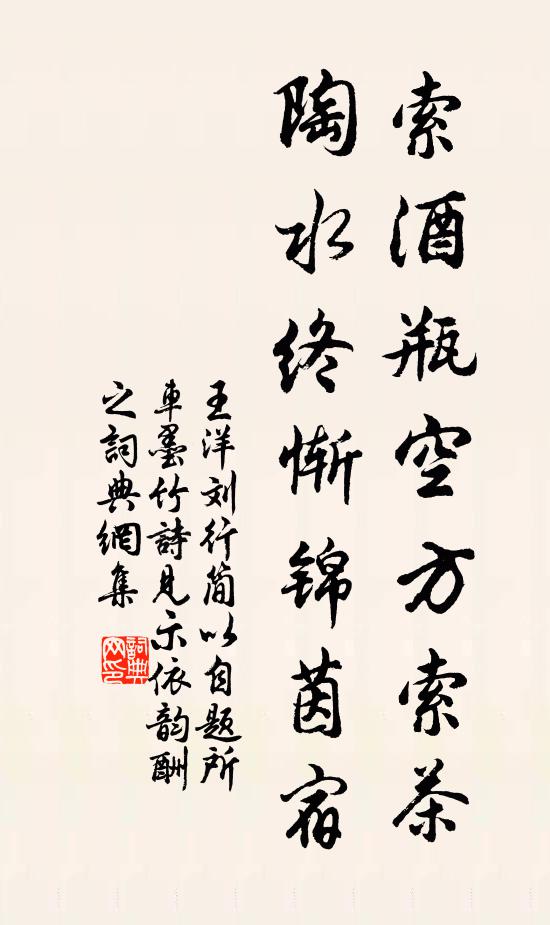 索酒瓶空方索茶
陶水终惭锦茵宿
王洋刘行简以自题所
車墨竹詩見示依韵酬
之詞典網集
詞典
网印